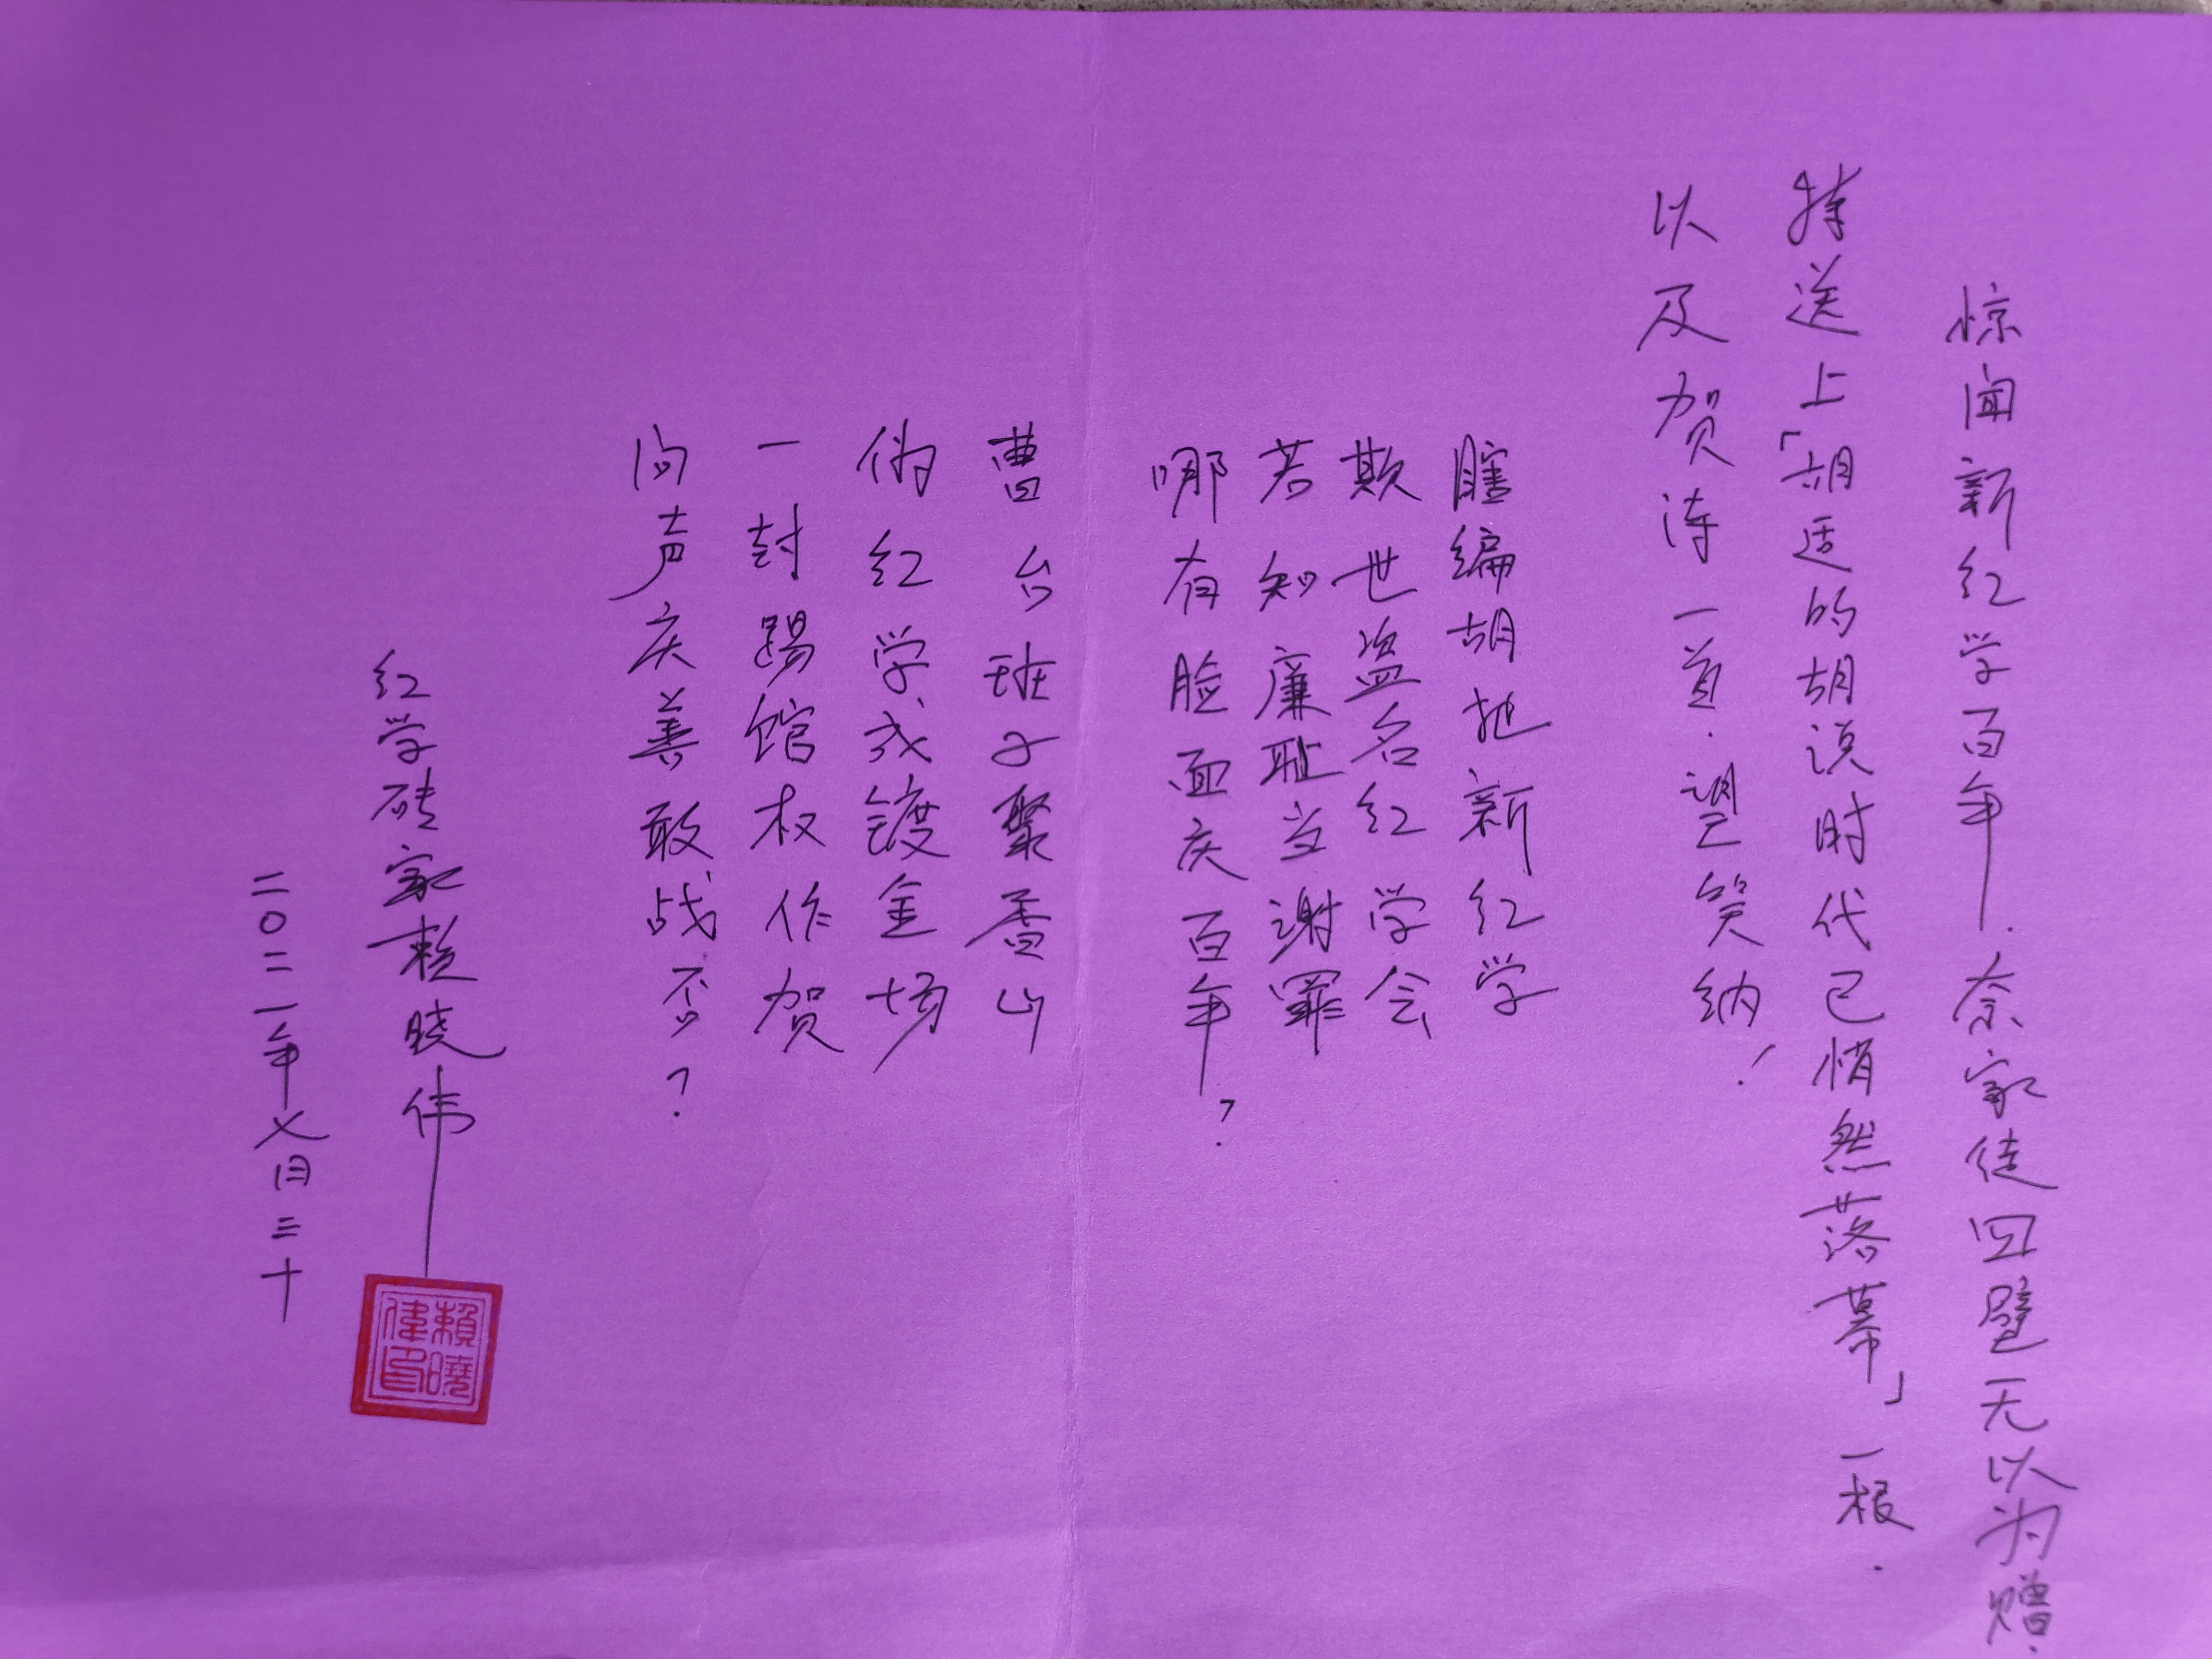 惊闻新红学百年.奈家徒四壁无以为赠.
特送上「胡适的胡说时代已悄然落幕」一根.
以及贺诗一首.望笑纳!
瞎编胡扯新红学
欺世盗名红学会
若知廉耻当谢罪
哪有脸面庆百年?
曹台班子聚香山
伪红学成镀金场
一封踢馆权作贺
问声庆善敢战否?
红学砖家赖晓伟
二〇二一年七月三十
賴曉偉印